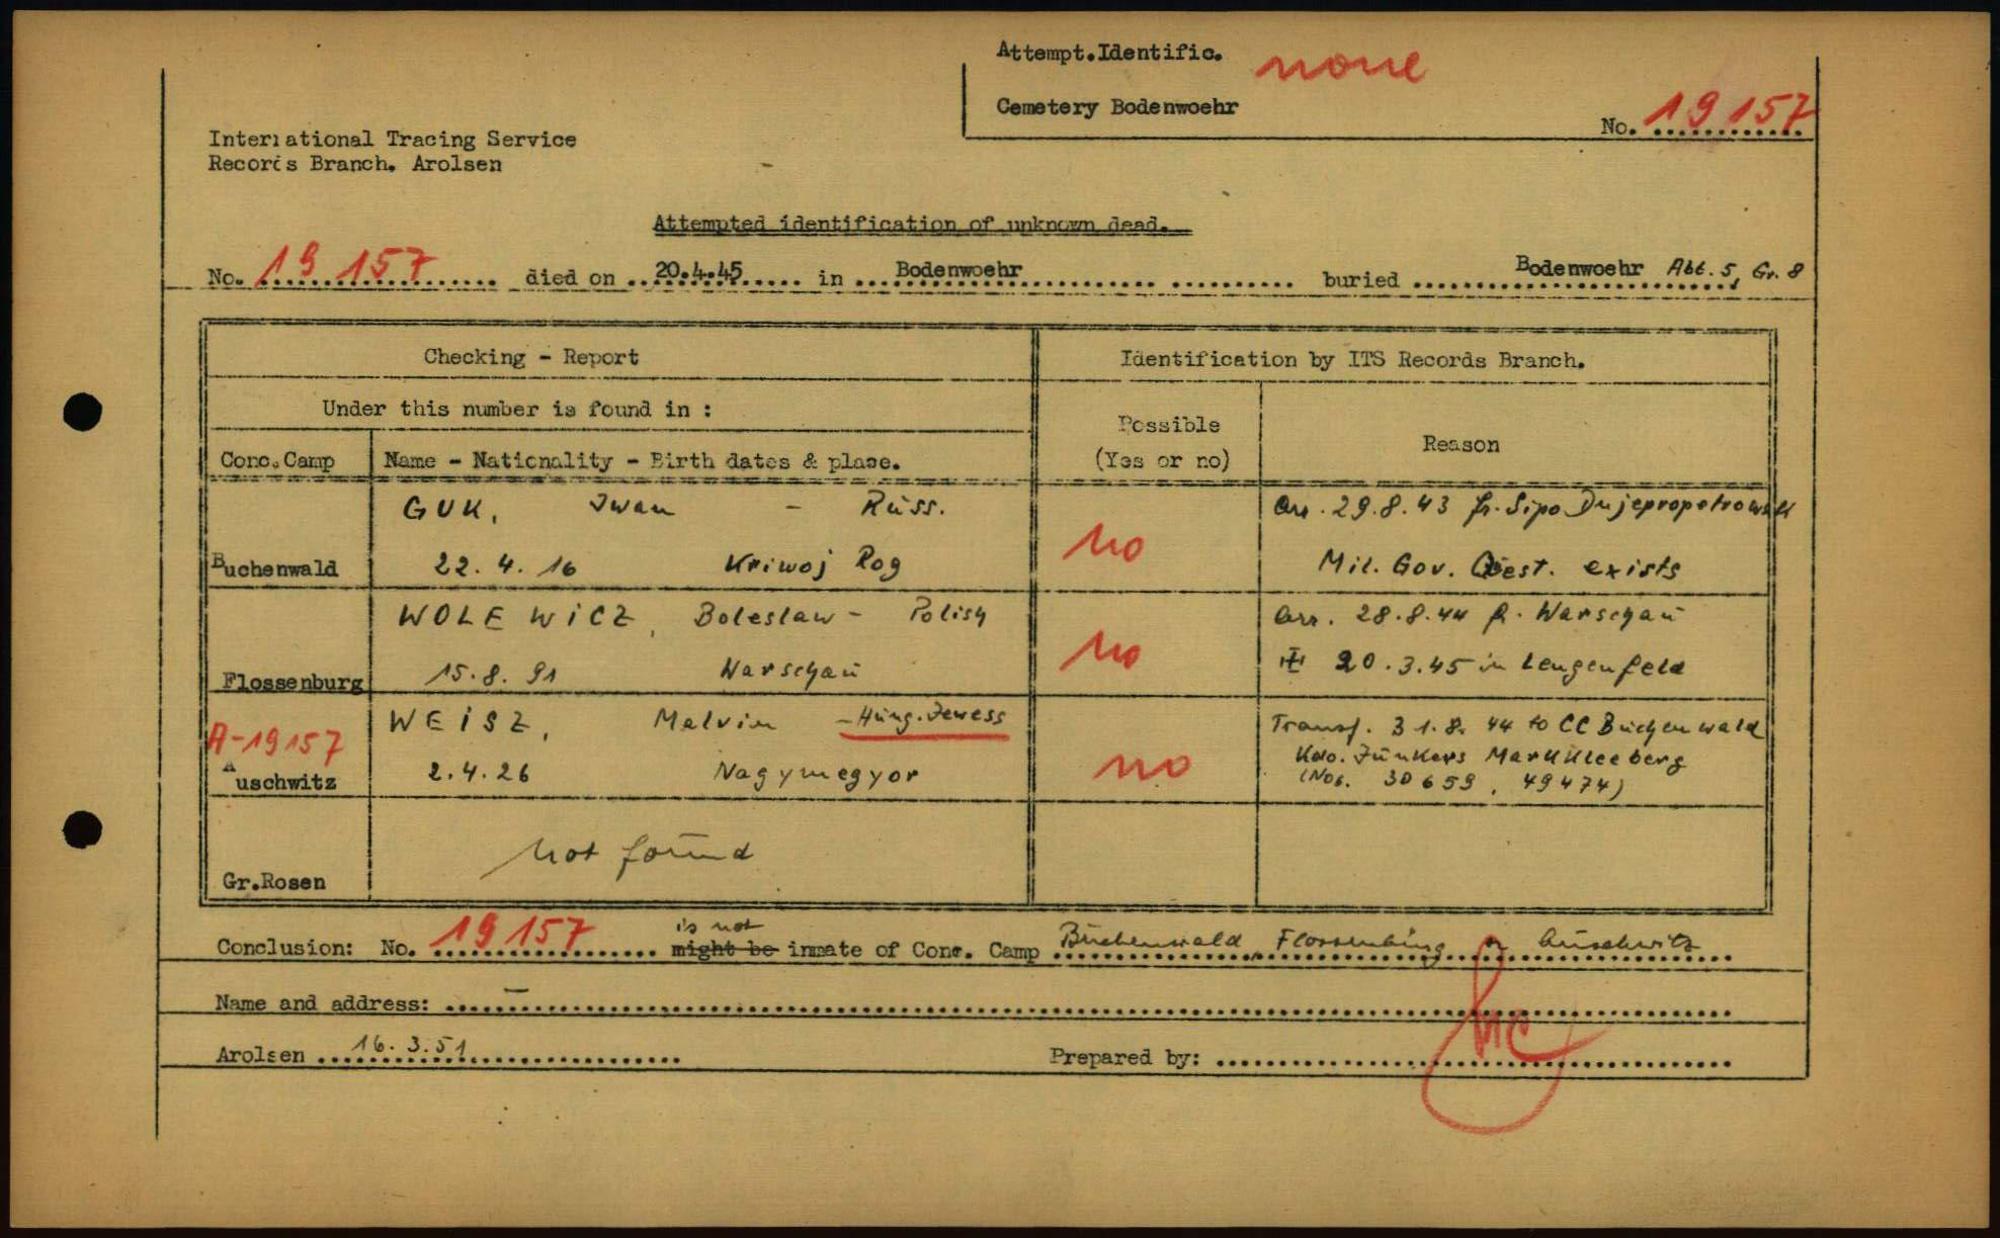 Attempt.Identific. none
Cemetery Bodenwoehr
No. 19 157
International Tracing Service
Records Branch. Arolsen
Attempted identification of unknown dead.
No. 19 157 died on 20.4.45 in Bodenwoehr buried Bodenwoehr Abt. 5, Gr. 8
Checking - Report
Identification by ITS Records Branch.
Under this number is found in :
Possible
(Yes or no)
Reason
Conc.Camp
Name - Nationality - Birth dates & place.
GUK, Iwan - Russ.
Arr. 29.8.43 fr. Sipo Dnjepropetrowsk
no
Buchenwald 22. 4. 16 Kriwoj Rog
Mil. Gov. Quest. exists
WOLEWICZ, Boleslaw - Polish
Arr. 28.8.44 fr. Warschau
no
Flossenburg 15. 8. 91 Warschau
20.3.45 in Lengenfeld
WEISZ, Melvin - Hung. Jewess
Transf. 31.8.44 to CC Buchenwald
A-19157
Kdo. Junkers Markkleeberg
no
Auschwitz 2.4.26 Nagymegyor
(Nos. 30659, 49474)
not found
Gr.Rosen
is not
Conclusion: No. 19 157 might be inmate of Conc. Camp Buchenwald, Flossenbürg or Auschwitz
Name and address: -
Arolsen 16. 3. 51
Prepared by: